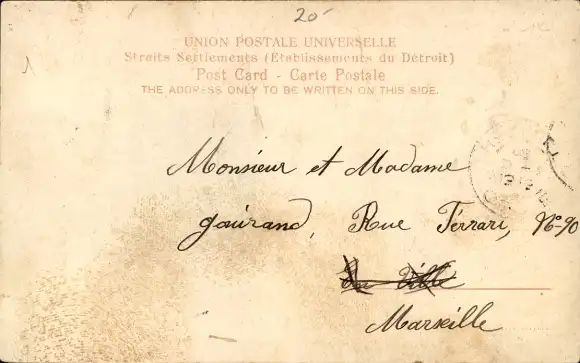 20-
UNION POSTALE UNIVERSELLE
Straits Settlements (Etablissements du Détroit)
Post Card - Carte Postale
THE ADDRESS ONLY TO BE WRITTEN ON THIS SIDE.
Monsieur et Madame
Gaurand, Rue Ferrari, No-90
En Ville
Marseille